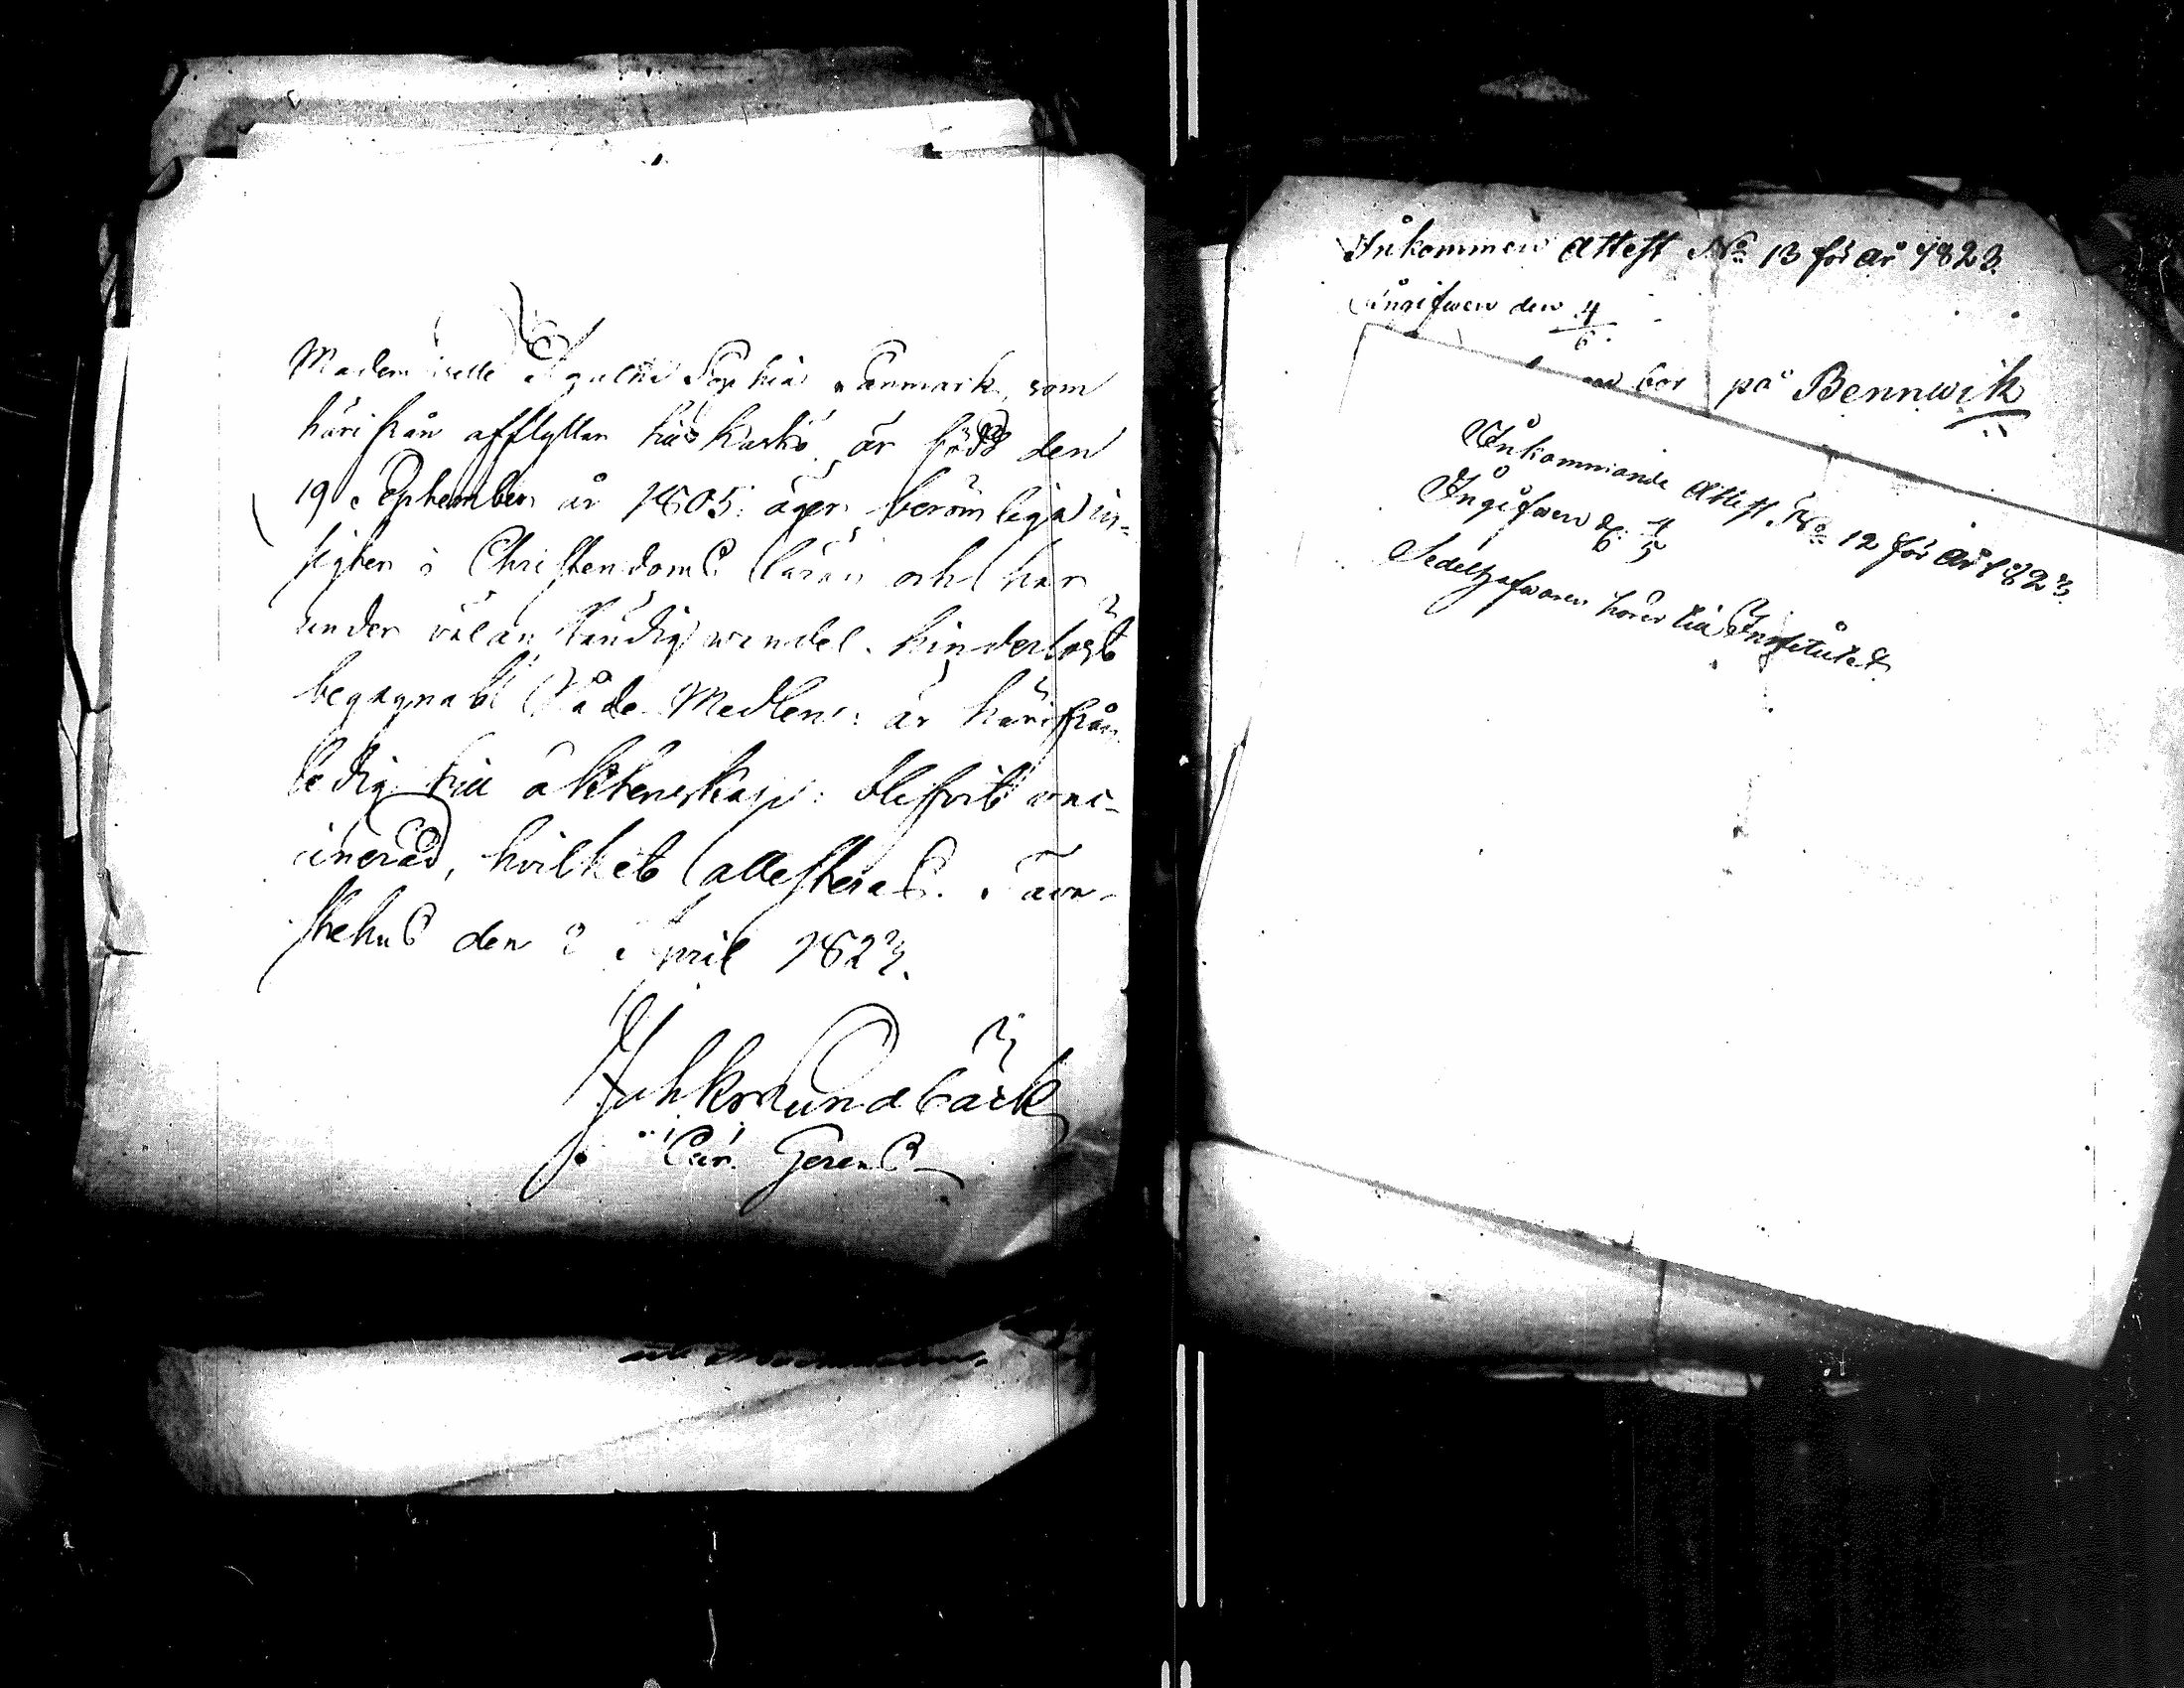 Mademoiselle Sophia Tanmark, som
härifrån afflyttar till Karkö är född den
19 September år 1805: äger berömliga in-
sigter i Christendoms läran och har
under välanständig wandel hinderlöst
begagnat Nåde Medlen: är härifrån
ledig till äktenskap: blefvit vac-
cinerad, hvilket attesteras. Tava-
stehus den April 1823.
Lundbäck
Cur. Gerens
Inkommen Attest No 13 för år 1823.
Ingifwen den 4/6.
bor på Bennwik
Inkommande Attest No 12 för år 1823.
Ingifwen d. 4/5
Sedelhafwaren hörer till Institutet.